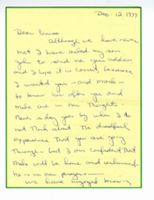 Dec. 12, 1979
Dear
Although we have never
met I have asked my son
John to send me your address
and I hope it is correct because
I wanted you - and
to know how often you and
are in our thoughts
a day goes by when I do
not think about the dreadful
experience that you are going
through - but I am confident that
will be home and unharmed.
he is in our prayers -
We have enjoyed knowing